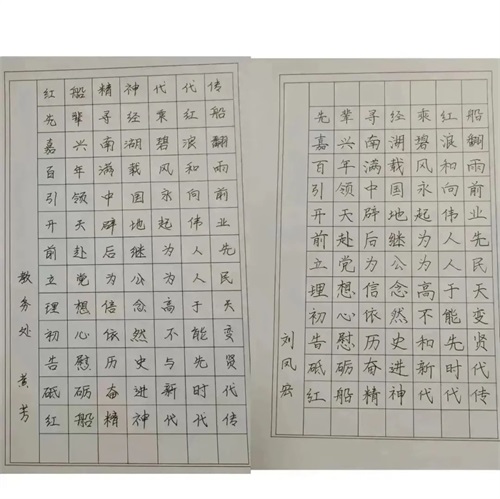 红船精神代代传
先辈寻经乘红船
嘉兴南湖碧浪翻
百年满载风和雨
引领中国永向前
开天辟地起伟业
前赴后继为人先
立党为公为人民
理想信念高于天
初心依然不能变
告慰历史与先贤
砥砺奋进新时代
红船精神代代传
教务处 黄芳
先辈寻经乘红船
嘉兴南湖碧浪翻
百年满载风和雨
引领中国永向前
开天辟地起伟业
前赴后继为人先
立党为公为人民
理想信念高于天
初心依然不能变
告慰历史和先贤
砥砺奋进新时代
红船精神代代传
刘凤